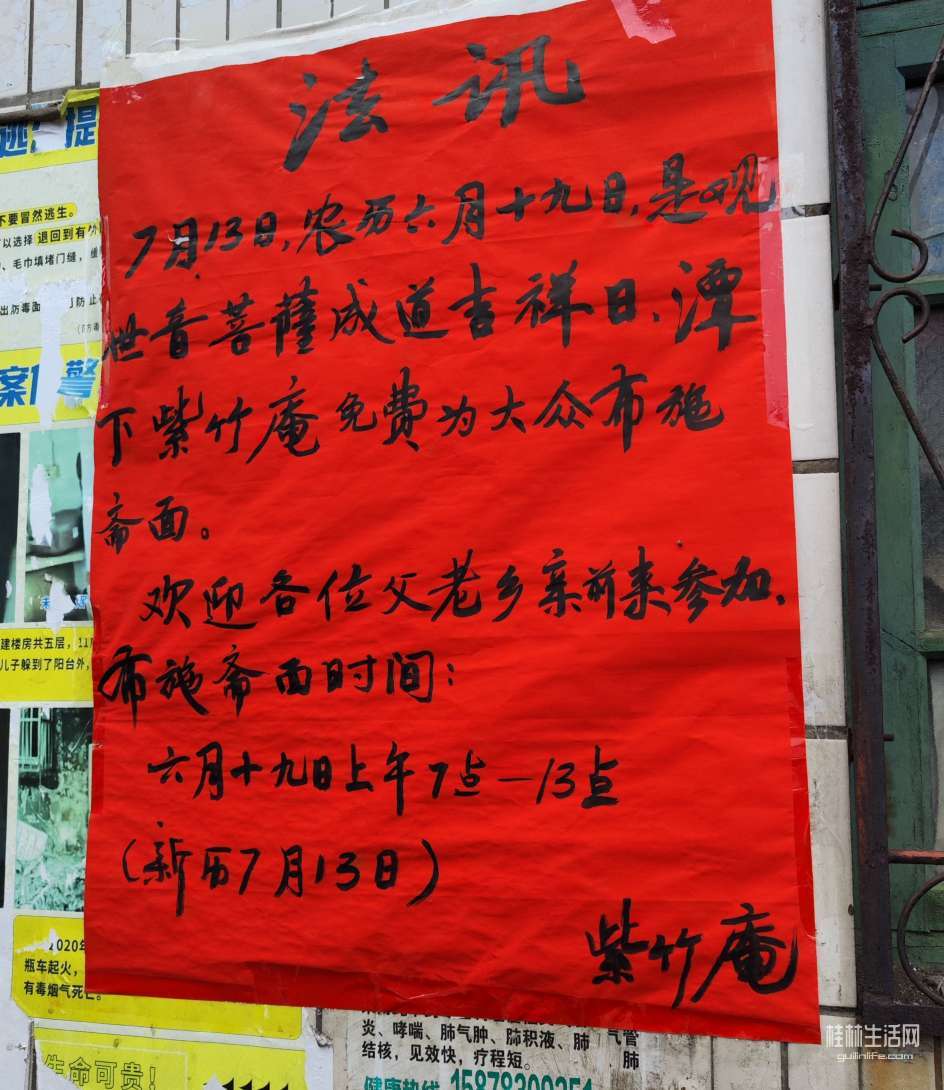 法讯
7月13日,农历六月十九日,是观
世音菩薩成道吉祥日,潭
下紫竹庵免费为大众布施
斋面。
欢迎各位父老乡亲前来参加,
布施斋面时间:
六月十九日上午7点—13点
(新历7月13日)
紫竹庵
提
不要冒然逃生。
以选择 退回到有
、毛巾填堵门缝,
出防毒面 防止
案 警
建楼房共五层,11
儿子躲到了阳台外,
2020年
瓶车起火,
有毒烟气死亡。
生命可贵!
炎、哮喘、肺气肿、肺积液、肺 气管
结核,见效快,疗程短。 肺
健康热线 15878300251
桂林生活网
guilinlife.com